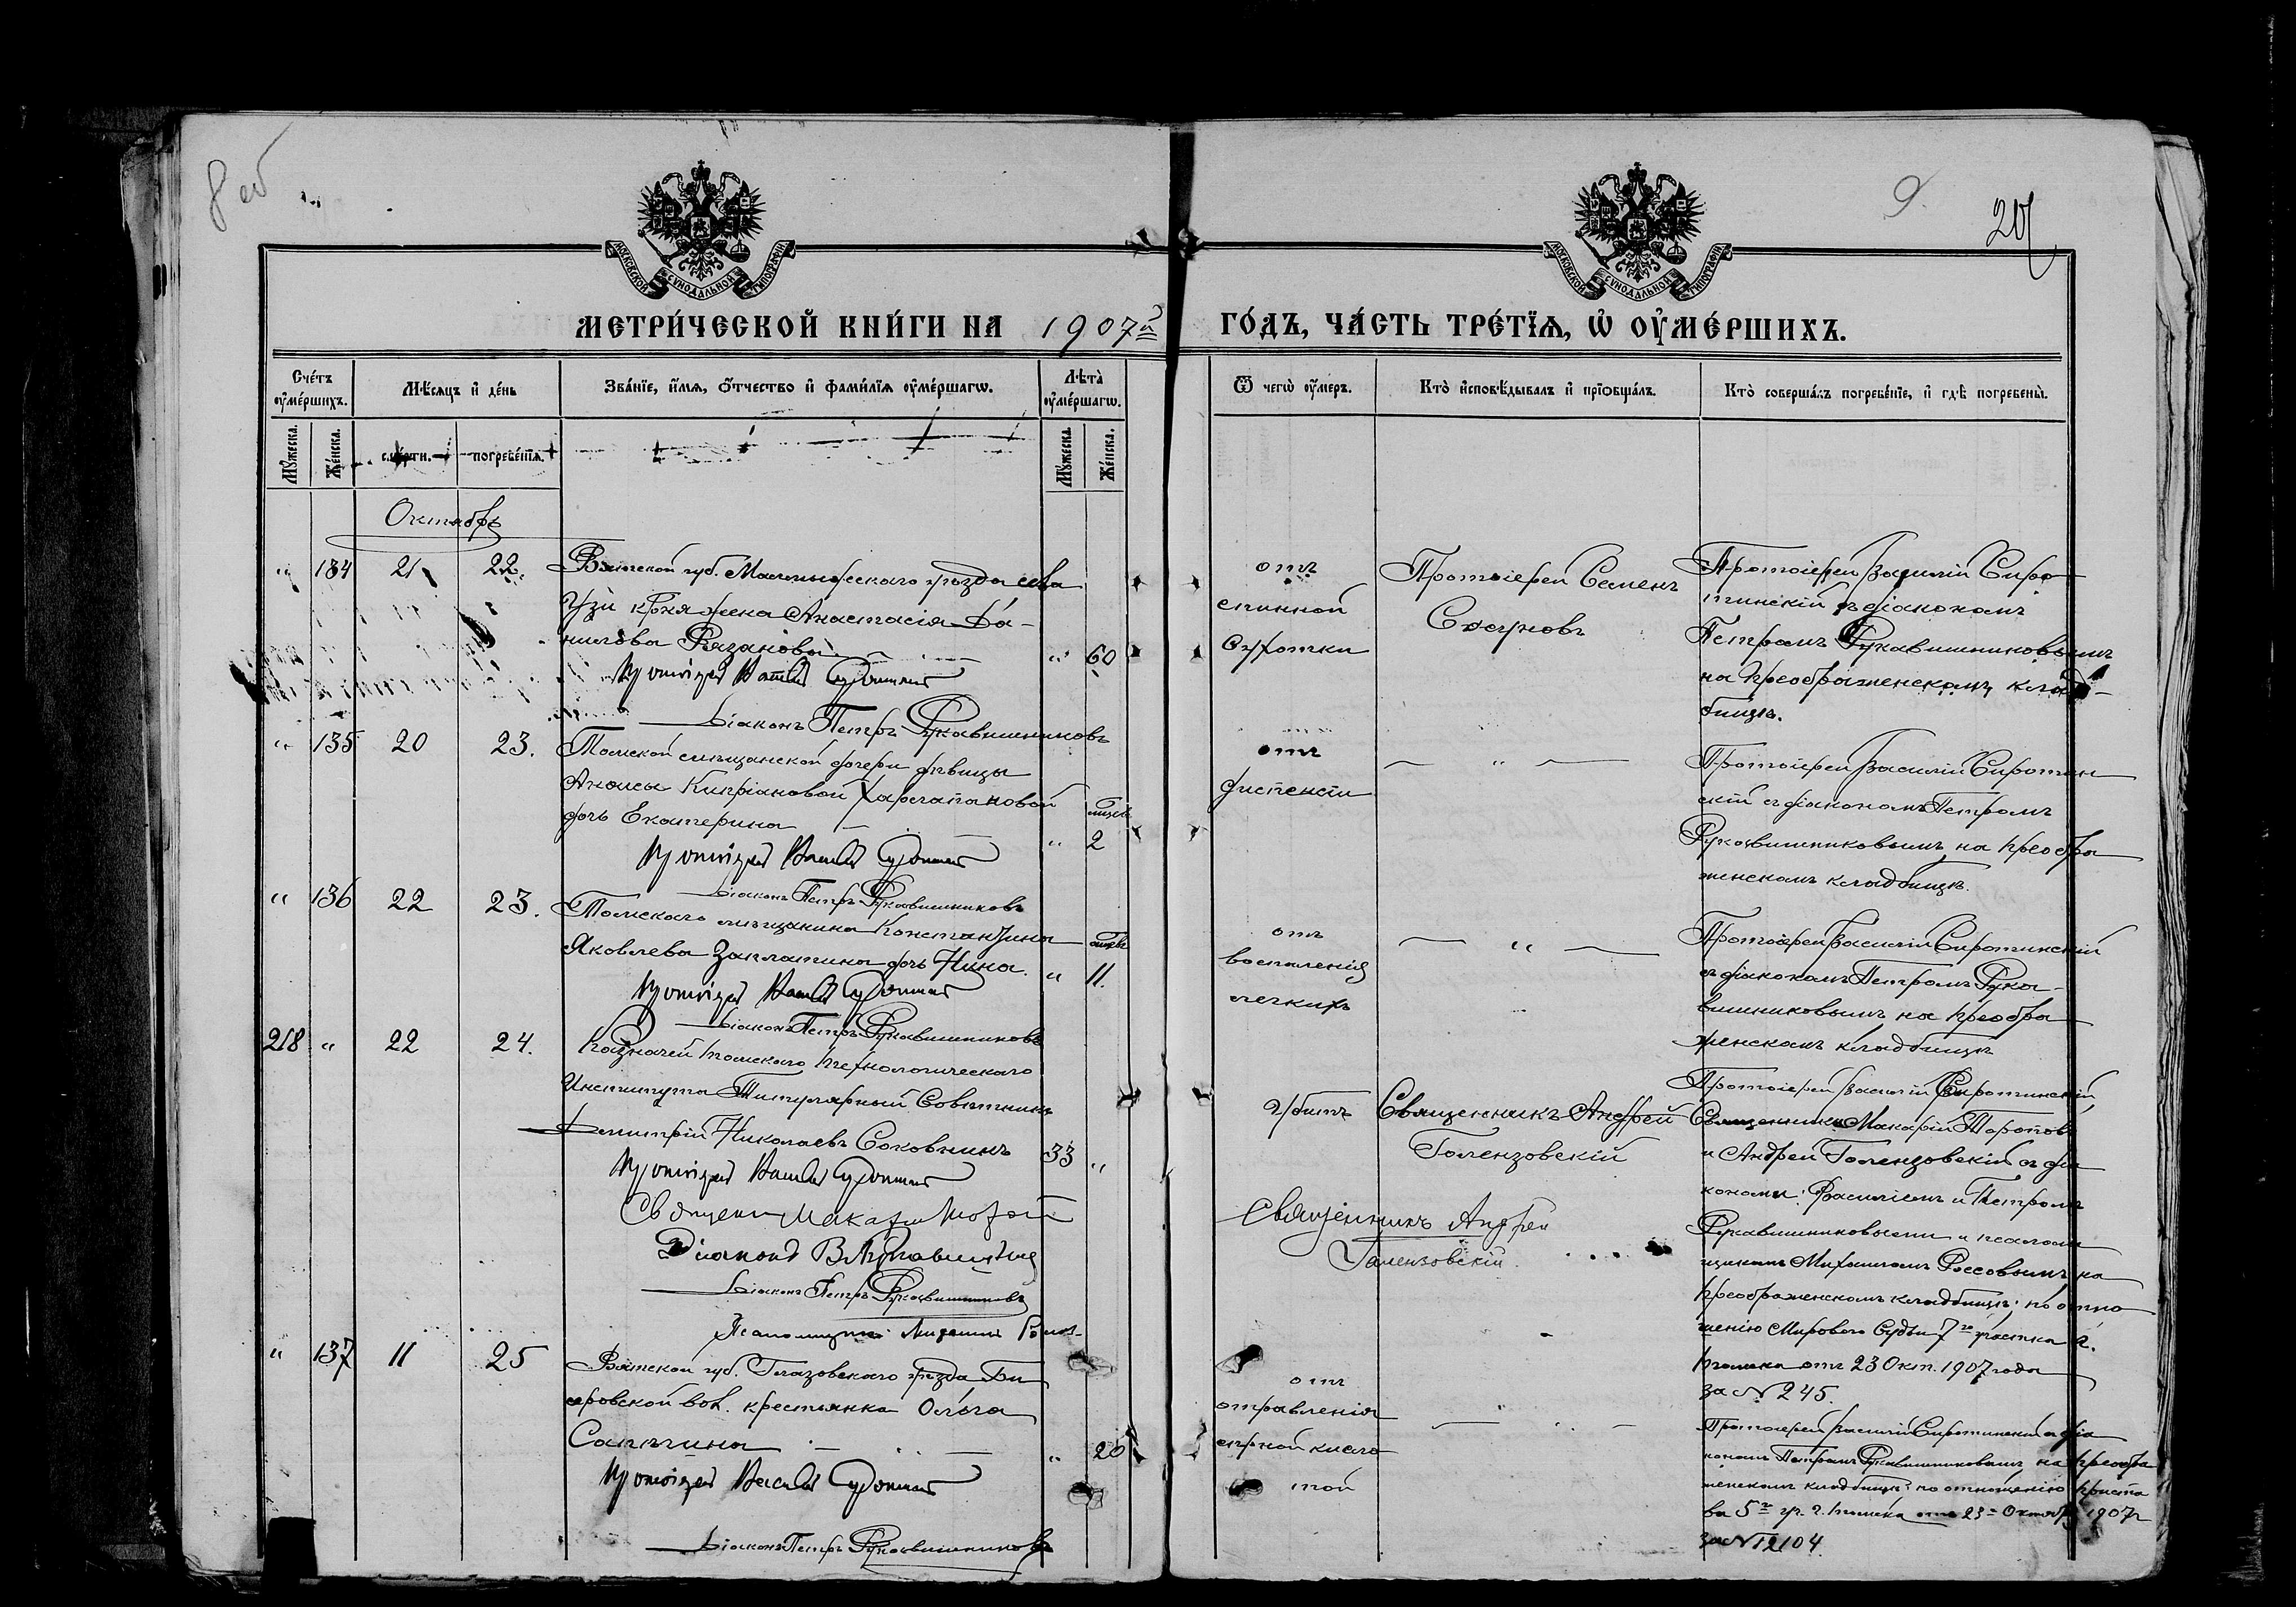 8 об
9.
МОСКОВСКОЙ СѴНОДАЛЬНОЙ ТИПОГРАФІИ
МОСКОВСКОЙ СѴНОДАЛЬНОЙ ТИПОГРАФІИ
МЕТРИ́ЧЕСКОЙ КНИ́ГИ НА 1907й ГО́ДЪ, ЧА́СТЬ ТРЕ́ТЇѦ, Ѡ҆ ОУ҆МЕ́РШИХЪ.
Сче́тъ оу҆ме́ршихъ.
Мѣ́сѧцъ и҆ де́нь
Зва́нїе, и҆́мѧ, ѻ҆́тчество и҆ фами́лїѧ оу҆ме́ршагѡ.
Лѣ̀та оу҆ме́ршагѡ.
Ѿ чегѡ̀ оу҆́меръ.
Кто̀ и҆сповѣ́дывалъ и҆ прїѡбща́лъ.
Кто̀ соверша́лъ погребе́нїе, и҆ гдѣ̀ погребены̀.
Мꙋ́жеска.
Же́нска.
сме́рти.
погребе́нїѧ.
Мꙋ́жеска.
Же́нска.
Октябрь
" 134 21 22
Вятской губ. Малмыжескаго уѣзда села
Узи кр-жена Анастасія Да-
нилова Рязанова
" 60
Протоіерей Василій Сиротинскій
Діаконъ Петръ Рукавишниковъ
отъ
спинной
сухотки
Протоіерей Семенъ
Сосуновъ
Протоіерей Василій Сиро-
тинскій съ діакономъ
Петромъ Рукавишниковымъ
на Преображенскомъ клад-
бищѣ.
" 135 20 23.
Томской мѣщанской дочери дѣвицы
Анисьи Кипріановой
дочь Екатерина
мѣсяц.
" 2
Протоіерей Василій Сиротинскій
Діаконъ Петръ Рукавишниковъ
отъ
диспепсіи
— " —
Протоіерей Василій Сиротин
скій съ діакономъ Петромъ
Рукавишниковымъ на Преобра
женскомъ кладбищѣ.
" 136 22 23.
Томскаго мѣщанина Константина
Яковлева Заплатина дочь Нина.
" 11.
Протоіерей Василій Сиротинскій
Діаконъ Петръ Рукавишниковъ
отъ
воспаленія
легкихъ
— " —
Протоіерей Василій Сиротинскій
съ діакономъ Петромъ Рука-
вишниковымъ на Преобра
женскомъ кладбищѣ
218 " 22 24.
Казначей Томскаго Технологическаго
Института Титулярный Совѣтникъ
Димитрій Николаевъ Соковнинъ
33 "
Протоіерей Василій Сиротинскій
Священ Макарій
Діаконъ В Рукавишниковъ
Діаконъ Петръ Рукавишниковъ
Псаломщикъ Михаилъ
убитъ
Священникъ Андрей
Голензовскій
Священникъ Андрей
Голензовскій.
Протоіерей Василій Сиротинскій,
Священники Макарій Торопов
и Андрей Голензовскій съ діа
конами: Василіемъ и Петромъ
Рукавишниковыми и псалом
щикомъ Михаиломъ на
Преображенскомъ кладбищѣ; по отно
шенію Мирового Судьи 7го участка г.
Томска отъ 23 Окт. 1907 года
за № 245.
" 137 11 25
Вятской губ. Глазовскаго уѣзда Би
серовской вол. крестьянка Ольга
Сапѣгина
" 20
Протоіерей Василій Сиротинскій
Діаконъ Петръ Рукавишниковъ
отъ
отравленія
сѣрной кисло
той
Протоіерей Василій Сиротинскій съ діа
кономъ Петромъ Рукавишниковымъ на Преобра
женскомъ кладбищѣ по отношенію Приста
ва 5го уч. г. Томска отъ 23 Октябр 1907 г
за № 12104.